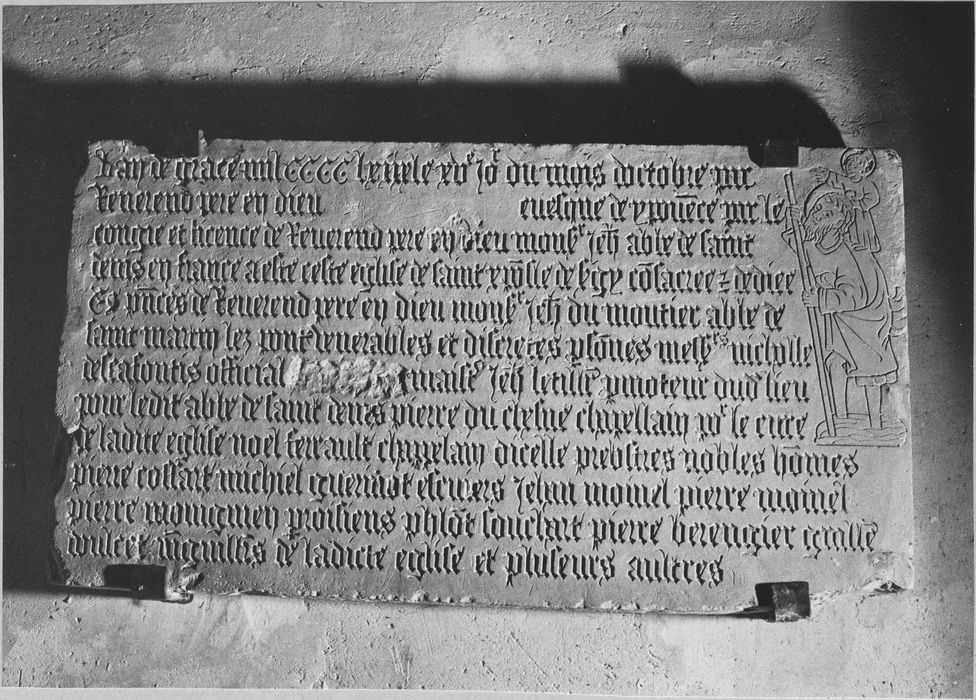 Lan de grace mil CCCC lxix le xve jor du mois doctobre par
Reverend pere en dieu evesque de par le
congie et licence de Reverend pere en dieu monsr jeh abbe de saint
denis en france a este ceste eglise de saint xpofle de consacree z dediee
Es pnces de Reverend pere en dieu monsr jeh du moutier abbe de
saint martin lez pont de venerables et discretes psones messrs nicholle
official maistr jeh pmoteur dud lieu
pour ledit abbe de saint denis pierre du chesne chapellain por le cure
de ladite eglise noel ferrault chappelain dicelle prebstres nobles homes
pierre cossart michiel escuiers jehan moinel pierre moinel
pierre phlot souchart pierre berengier guille
de ladicte eglise et pluseurs aultres